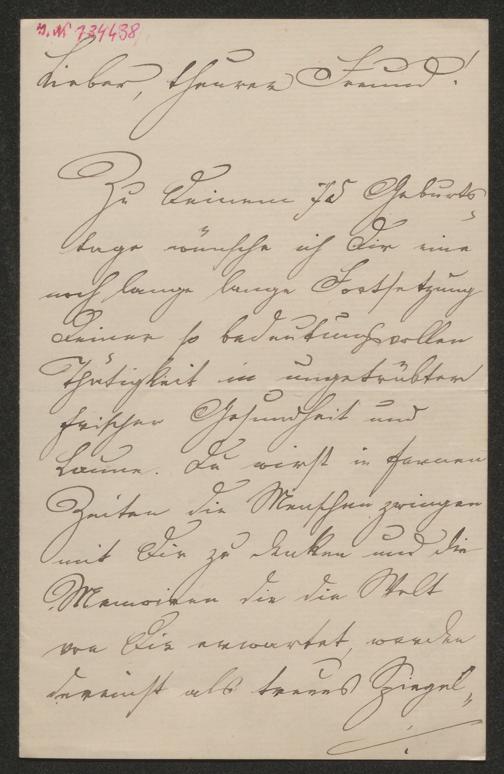 J. N 134438
Lieber, theurer Freund!
Zu Deinem 75 Geburts
tage wünsche ich Dir eine
noch lange lange Fortsetzung
Deiner so bedeutungsvollen
Thätigkeit in ungetrübter
frischer Gesundheit und
Laune. Du wirst in fernen
Zeiten die Menschen zwingen
mit Dir zu denken und die
Memoiren die die Welt
von Dir erwartet, werden
dereinst als treues Spiegel-